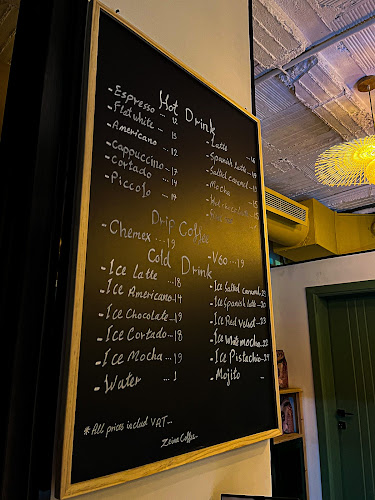 Hot Drink
- Espresso ... 12
- Flat white ... 15
- Americano ... 12
- Cappuccino ... 17
- Cortado ... 14
- Piccolo ... 14
- Latte
- Spanish latte
- Salted caramel
- Mocha
Drip Coffee
- Chemex ... 19
- V60 .. 19
Cold Drink
- Ice latte ... 18
- Ice Americano - 14
- Ice Chocolate - 19
- Ice Cortado - 18
- Ice Mocha ... 19
- Water ... 1
- Ice Salted caramel
- Ice Spanish latte
- Ice Red Velvet
- Ice White mocha
- Ice Pistachio
- Mojito
* All prices includ VAT -
Zeina Coffee